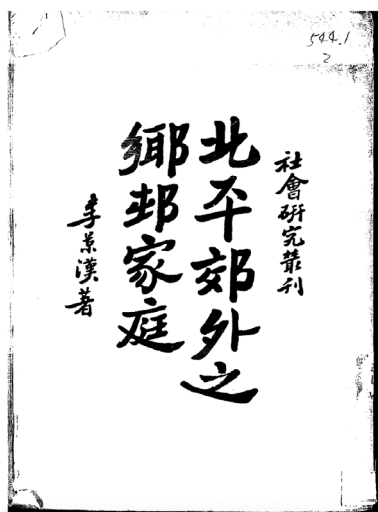 544.1
2
社會硏究叢刊
北平郊外之
鄉邨家庭
李景漢著